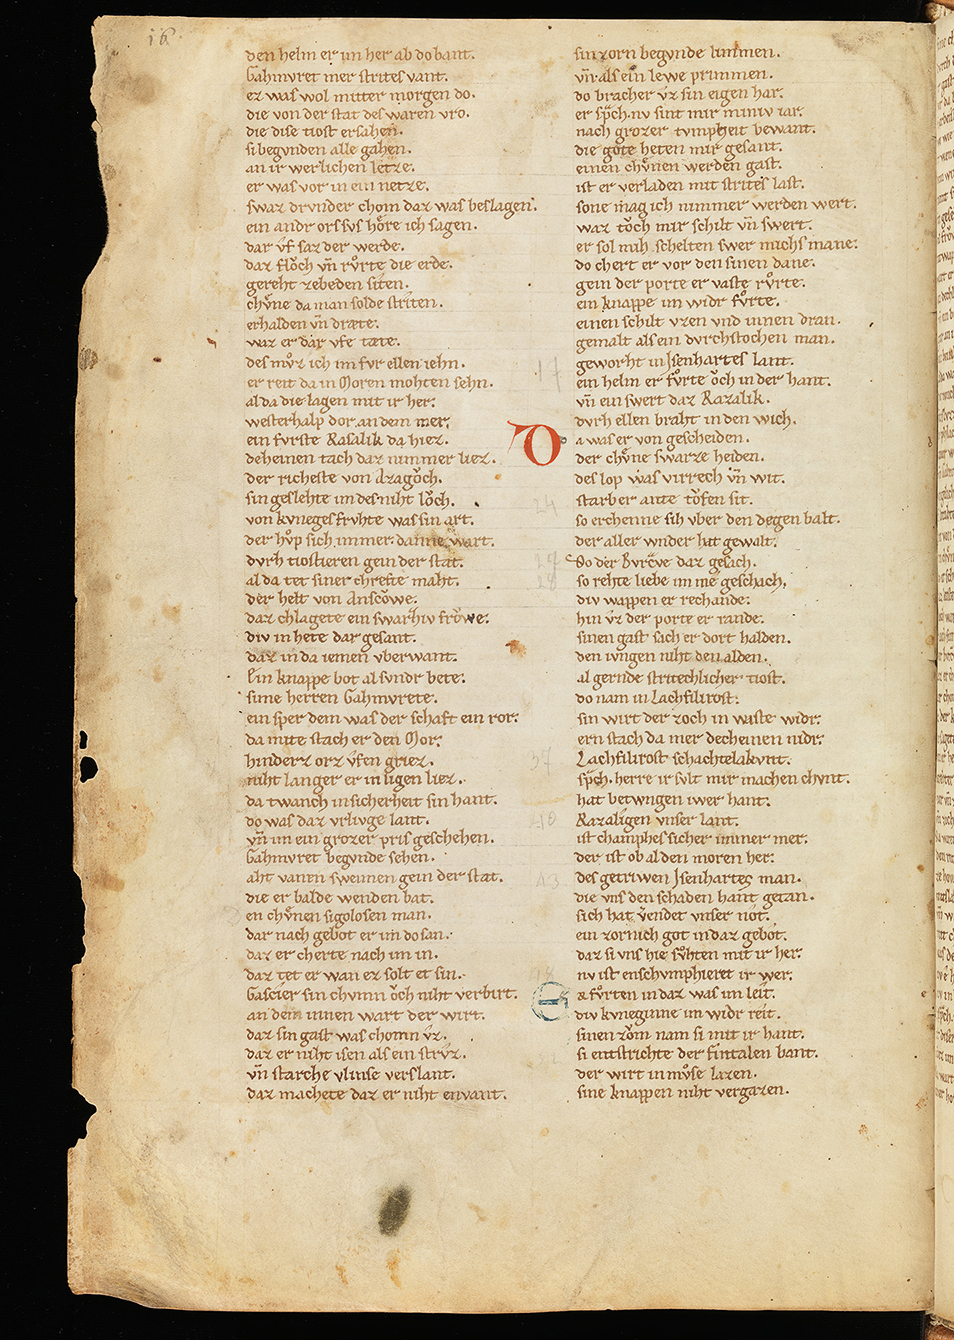 16
den helm er im her ab do bant.
Gahmvret mer strites vant.
ez was wol mitter morgen do.
die von der stat des waren vro.
die dise tiost ersahen.
si begvnden alle gahen.
an ir werlichen letze.
er was vor in ein netze.
swaz drvnder chom daz was beslagen.
ein andr ors svs hoͤre ich sagen.
dar vͤf saz der werde.
daz floͮch vn̄ rvͦrte die erde.
gereht zebeden siten.
chvͤne da man solde striten.
erhalden vn̄ dræte.
waz er dar vfe tæte.
des mvͦz ich im fvr ellen iehn.
er reit da in Moren mohten sehn.
al da die lagen mit ir her.
westerhalp dor an dem mer.
ein fvrste Rasalik da hiez.
deheinen tach daz nimmer liez.
der richeste von Azagoͮch.
sin geslehte im des niht loͮch.
von kvneges frvhte was sin art.
der hvͦp sich immer dannewart.
dvrh tiostieren gein der stat.
al da tet siner chrefte maht.
der helt von Anscoͮwe.
daz chlagete ein swarziv froͮwe.
div in hete dar gesant.
daz in da iemen vberwant.
Ein knappe bot al svndr bete.
sime herren Gahmvrete.
ein sper dem was der schaft ein ror.
da mite stach er den Mor.
hinderz orz vͤfen griez.
niht langer er in ligen liez.
da twanch in sicherheit sin hant.
do was daz vrlivge lant.
vn̄ im ein grozer pris geschehen.
Gahmvret begvnde sehen.
aht vanen sweimen gein der stat.
die er balde wenden bat.
en chvͤnen sigolosen man.
dar nach gebot er im do san.
daz er cherte nach im in.
daz tet er wan ez solt et sin.
Gascier sin chvmn oͮch niht verbirt.
an dem innen wart der wirt.
daz sin gast was chomn vͤz.
daz er niht isen als ein strvͤz.
vn̄ starche vlinse verslant.
daz machete daz er niht envant.
sin zorn begvnde limmen.
vn̄ als ein lewe primmen.
do bracher vz sin eigen har.
er sp̄ch. nv sint mir miniv iar.
nach grozer tvmpheit bewant.
die gote heten mir gesant.
einen chvͤnen werden gast.
ist er verladen mit strites last.
sone mag ich nimmer werden wert.
waz toͮch mir schilt vn̄ swert.
er sol mih schelten swer michs mane.
do chert er vor den sinen dane.
gein der porte er vaste rvͦrte.
ein knappe im widr fvͦrte.
einen schilt vzen vnd innen dran.
gemalt als ein dvrchstochen man.
geworht in Jsenhartes lant.
ein helm er fvͦrte oͮch in der hant.
vn̄ ein swert daz Razalik.
dvrh ellen braht in den wich.
Da was er von gescheiden.
der chvͤne swarze heiden.
des lop was virrech vn̄ wit.
starber ante toͮfen sit.
so erchenne sih vber den degen balt.
der aller wnder hat gewalt.
So der Bvrcͮve daz gesach.
so rehte liebe im nie geschach,
div wappen er rechande.
hin vͤz der porte er rande.
sinen gast sach er dort halden.
den ivngen niht den alden.
al gernde stritechlicher tiost.
do nam in Lachfilirost.
sin wirt der zoch in vaste widr.
ern stach da mer decheinen nidr.
Lachfilirost schachtelakvnt.
sp̄ch. herre ir svlt mir machen chvnt.
hat betwngen iwer hant.
Razaligen vnser lant.
ist champhes sicher immer mer.
der ist ob al den moren her.
des getriwen Jsenhartes man.
die vns den schaden hant getan.
sich hat v̄endet vnser not.
ein zornich got in daz gebot.
daz si vns hie svͦhten mit ir her.
nv ist enschvmphieret ir wer.
Er fvͦrten in daz was im leit.
div kvneginne im widr reit.
sinen zoͮm nam si mit ir hant.
si entstrichte der fintalen bant.
der wirt in mvͦse lazen.
sine knappen niht vergazen.